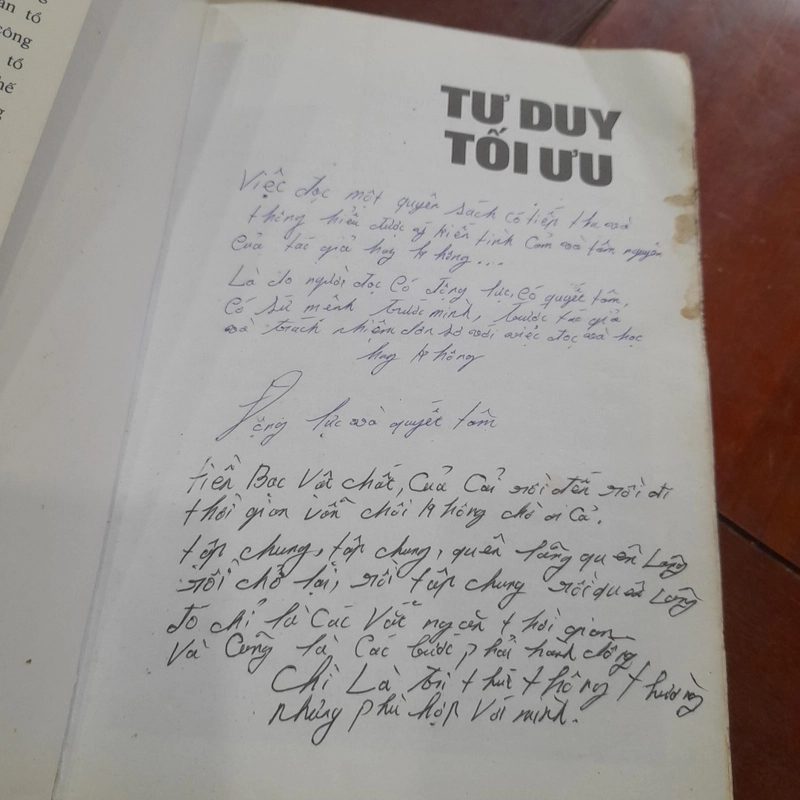 ần tổ
công
tổ
hế
g
TƯ DUY
TỐI ƯU
Việc đọc một quyển sách có tiếp thu và
thông hiểu được kiến tình cảm và tâm nguyện
của tác giả hay không...
Là do người đọc có động lực, có quyết tâm,
có sứ mệnh trước mình, trước tác giả
và trách nhiệm với việc đọc và học
hay không
Động lực và quyết tâm
tiền Bạc Vật chất, Của Cải rồi đến rồi đi
thời gian vẫn chôi không chờ ai Cả.
tập chung, tập chung, quên lãng quên Lãng
rồi chở lại, rồi tập chung rồi quên Lãng
đó chỉ là Các Vắt ngắn thời gian
Và Cũng là Các bước phải hành động
Chỉ Là thứ thông thường
nhưng phù hợp Với mình.